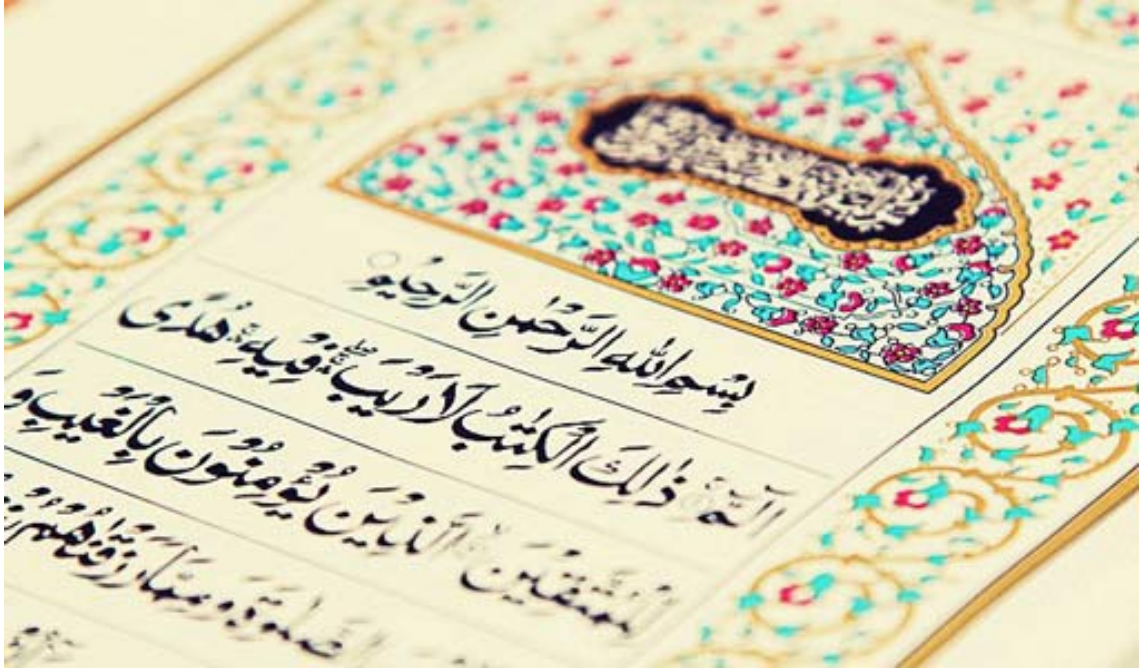 بِسْمِ اللّٰهِ الرَّحْمٰنِ الرَّحِيْمِ
الٓمّٓ ذٰلِكَ الْكِتٰبُ لَا رَيْبَ ۛۖ فِيْهِ ۛ هُدًى
لِّلْمُتَّقِيْنَ الَّذِيْنَ يُؤْمِنُوْنَ بِالْغَيْبِ وَ
الصَّلٰوةَ وَ مِمَّا رَزَقْنٰهُمْ